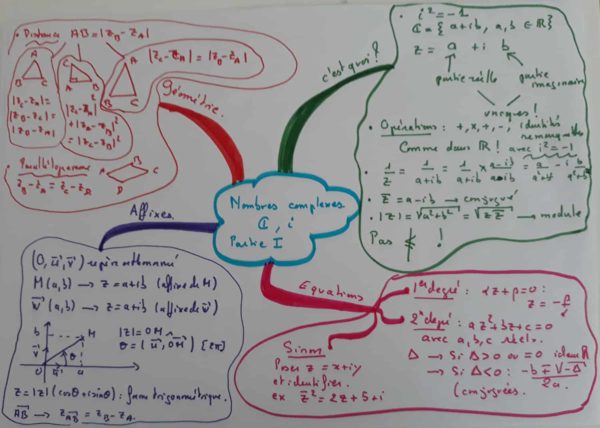 Nombres complexes
ℂ, i
Partie I
c'est quoi?
• i² = -1
ℂ = {a+ib, a, b ∈ ℝ}
z = a + i b
partie réelle
partie imaginaire
uniques!
• Opérations: +, x, ÷, -, identités remarquables
Comme dans ℝ! avec i² = -1
• 1/z = 1/(a+ib) = 1/(a+ib) × (a-ib)/(a-ib) = a/(a²+b²) - i b/(a²+b²)
• z̄ = a-ib → conjugué
• |z| = √(a²+b²) = √(z z̄) → module
Pas ≤ !
Géométrie
• Distance AB = |z_B - z_A|
A
B C
|z_C - z_A| =
|z_B - z_C| =
|z_B - z_A|
C
A B
|z_C - z_A|²
+ |z_A - z_B|²
= |z_B - z_C|²
A
B C
|z_C - z_A| = |z_B - z_A|
• Parallélogramme
z_B - z_A = z_C - z_D
B
C
A
D
Affixes
(O, u⃗, v⃗) repère orthonormé
M(a, b) → z = a+ib (affixe de M)
V⃗(a, b) → z = a+ib (affixe de v⃗)
b
M
v⃗
θ
O u⃗ a
|z| = OM
θ = (u⃗, OM⃗) [2π]
z = |z|(cosθ + i sinθ): forme trigonométrique.
AB⃗ → z_AB⃗ = z_B - z_A.
Equations
1er degré: αz + β = 0:
z = -β/α
2e degré: az² + bz + c = 0
avec a, b, c réels.
Δ → Si Δ > 0 ou = 0 idem ℝ
→ Si Δ < 0: (-b ∓ i√-Δ)/2a
(conjuguées.
Sinon
Poser z = x+iy
et identifier.
ex z² = 2z + 5 + i